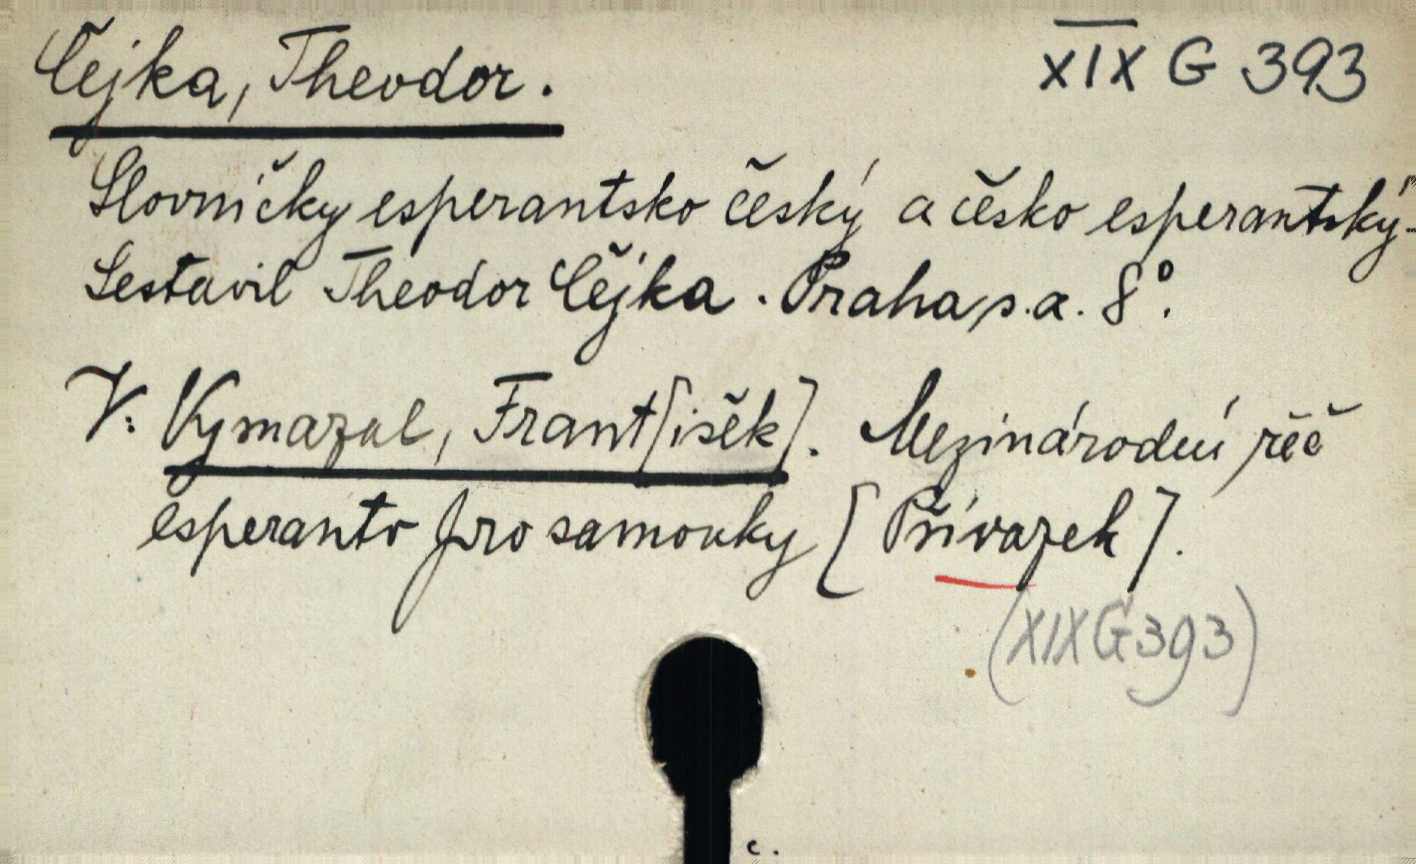 Čejka, Theodor.
XIX G 393
Slovníčky esperantsko český a česko esperantský.
Sestavil Theodor Čejka. Praha, s.a. 8°.
V: Vymazal, Frant[išek]. Mezinárodní řeč
esperanto pro samouky [Přívazek].
(XIX G 393)
c.